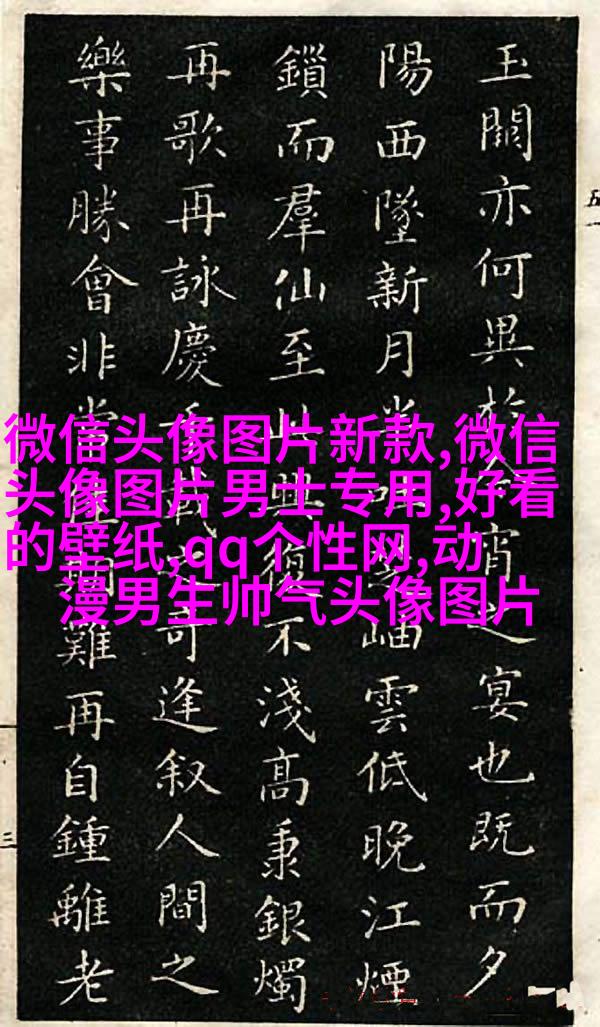 玉闕亦何異於今宵之宴也既而夕
陽西墜新月岫雲低晚江煙
鎖而羣仙至此興復不淺高秉銀燭
再歌再詠慶逢叙人間之
樂事勝會非常難再自鍾離老
微信头像图片新款,微信
头像图片男士专用,好看
的壁纸,qq个性网,动
漫男生帅气头像图片
五
三